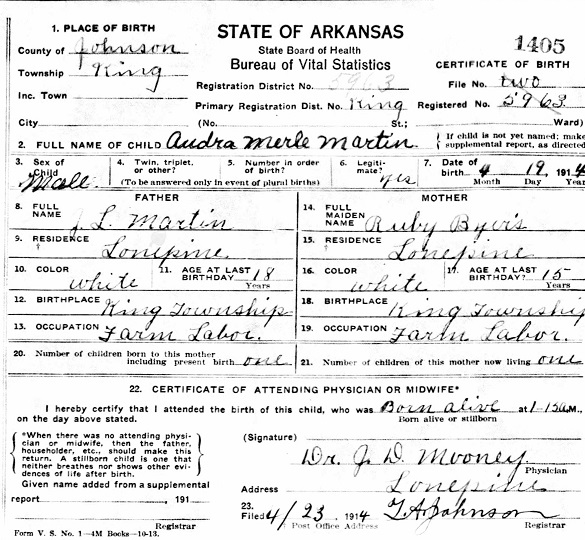 1. PLACE OF BIRTH
STATE OF ARKANSAS
State Board of Health
Bureau of Vital Statistics
1405
CERTIFICATE OF BIRTH
County of Johnson
Township King
Inc. Town
City
Registration District No. 5963
File No. two
Primary Registration Dist. No. King
Registered No. 5963
(No. St.; Ward)
2. FULL NAME OF CHILD Audra Merle Martin
{ If child is not yet named; make supplemental report, as directed
3. Sex of Child Male.
4. Twin, triplet, or other?
5. Number in order of birth?
(To be answered only in event of plural births)
6. Legitimate? yes
7. Date of birth 4 19 1914
Month Day Year
FATHER
MOTHER
8. FULL NAME J L Martin
14. FULL MAIDEN NAME Ruby Byers
9. RESIDENCE Lonepine
15. RESIDENCE Lonepine
10. COLOR white
11. AGE AT LAST BIRTHDAY 18 Years
16. COLOR white
17. AGE AT LAST BIRTHDAY? 15 Years
12. BIRTHPLACE King Township
18. BIRTHPLACE King Township
13. OCCUPATION Farm Labor.
19. OCCUPATION Farm Labor.
20. Number of children born to this mother including present birth one
21. Number of children of this mother now living one
22. CERTIFICATE OF ATTENDING PHYSICIAN OR MIDWIFE*
I hereby certify that I attended the birth of this child, who was Born alive at 1-15 A M.,
on the day above stated.
Born alive or stillborn
{ *When there was no attending physician or midwife, then the father, householder, etc., should make this return. A stillborn child is one that neither breathes nor shows other evidences of life after birth. }
(Signature)
Dr. J. D. Mooney
Physician
Given name added from a supplemental
report , 191
Registrar
Address Lonepine
23. Filed 4/23 1914 T A Johnson
Post Office Address
Registrar
Form V. S. No. 1-4M Books-10-13.